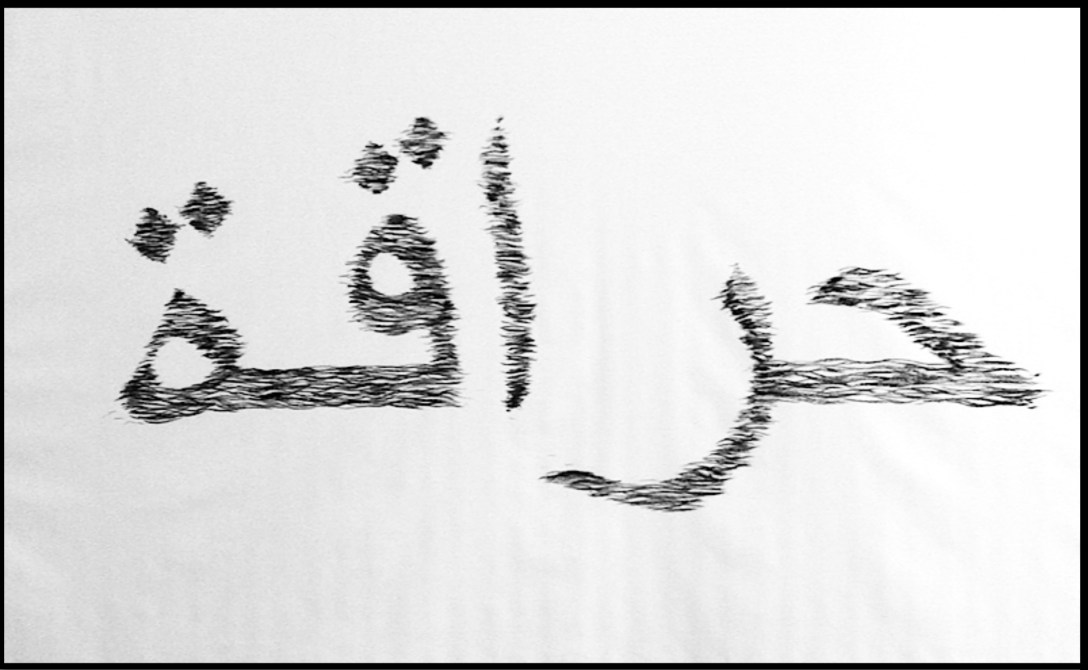 حراقة